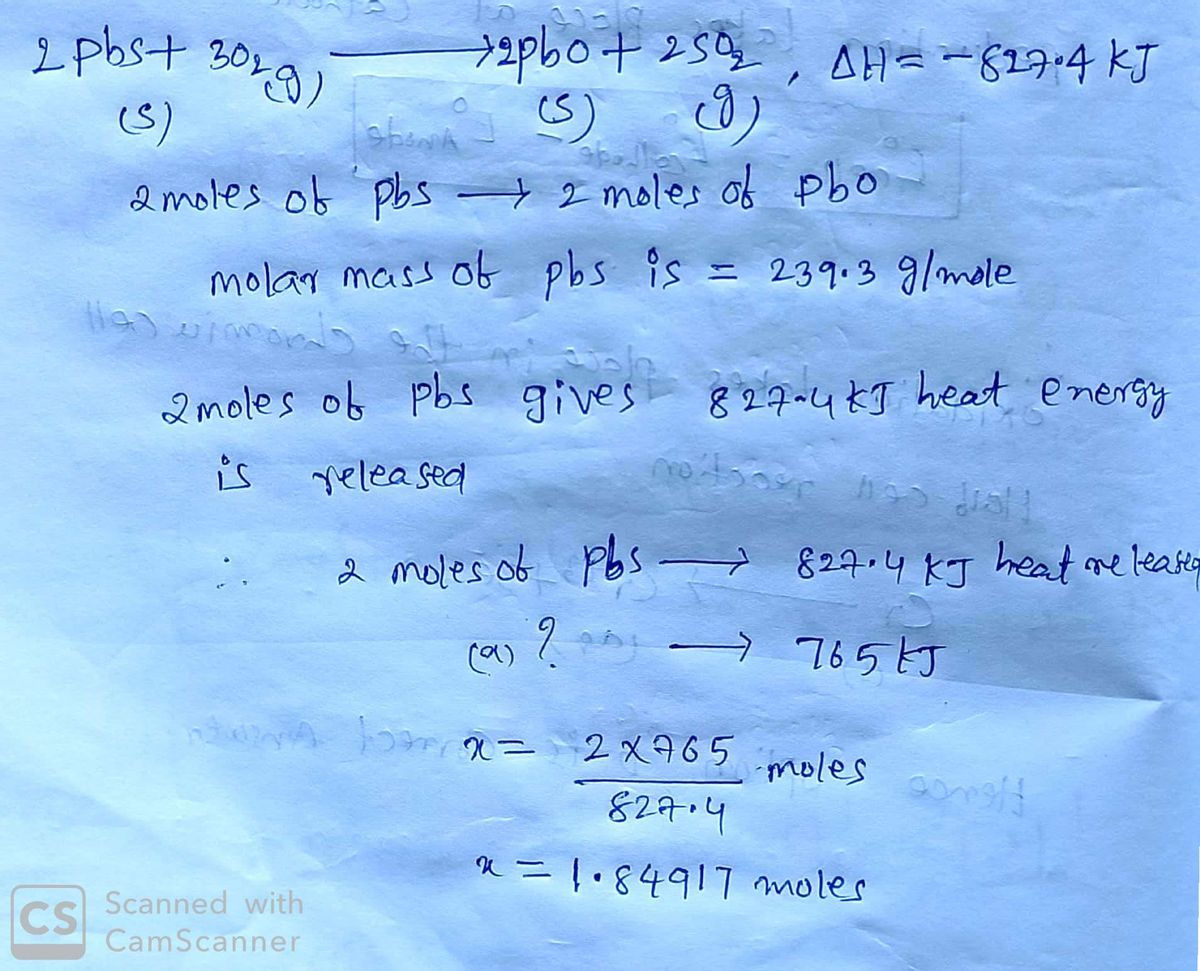 2 pbs + 3O2(g) → 2pbo + 2SO2, ΔH = -827.4 kJ
(s) (s) (g)
2 moles of pbs → 2 moles of pbo
molar mass of pbs is = 239.3 g/mole
2 moles of pbs gives 827.4 kJ heat energy
is released
∴ 2 moles of pbs → 827.4 kJ heat released
(a) ? → 765 kJ
x = 2 x 765 moles
827.4
x = 1.84917 moles
CS Scanned with
CamScanner